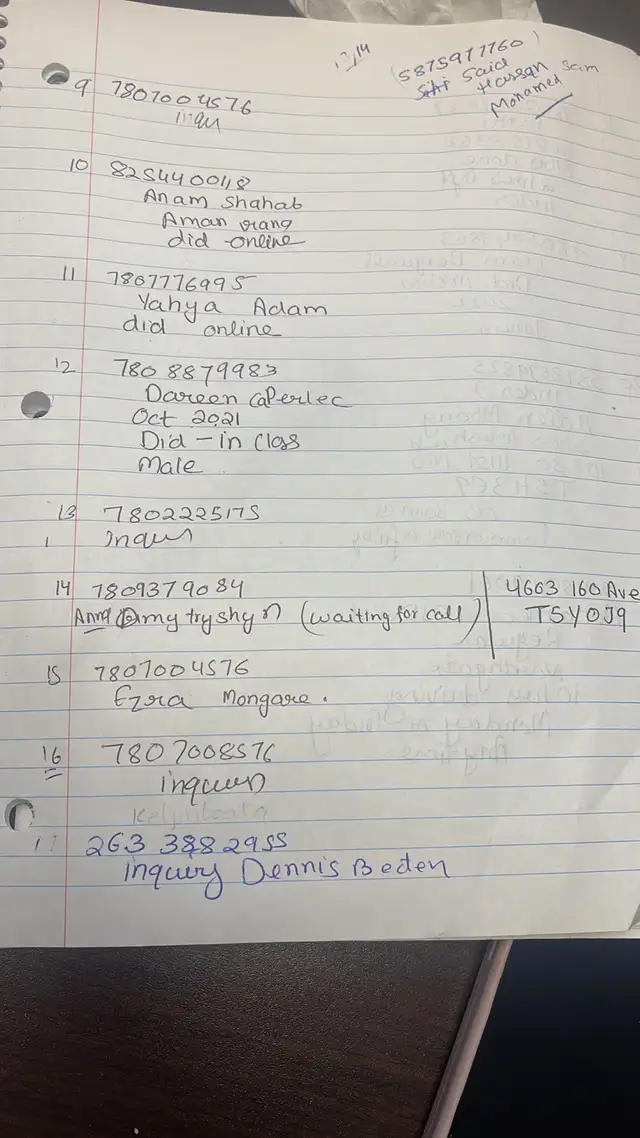 13,14
(5875977760)
Siti Said
Hassan Sam
Mohamed
9 7807004576
inqu
10 8254400118
Anam Shahab
Aman
did online
11 7807776995
Yahya Adam
did online
12 780 8879983
Dareen
Oct 2021
Did - in class
Male
13 7802225175
1
14 7809379084
(waiting for call)
4603 160 Ave
T5Y0J9
15 7807004576
Ezra Mongare.
16 7807008576
17 263 3882955
inquiry Dennis Beden